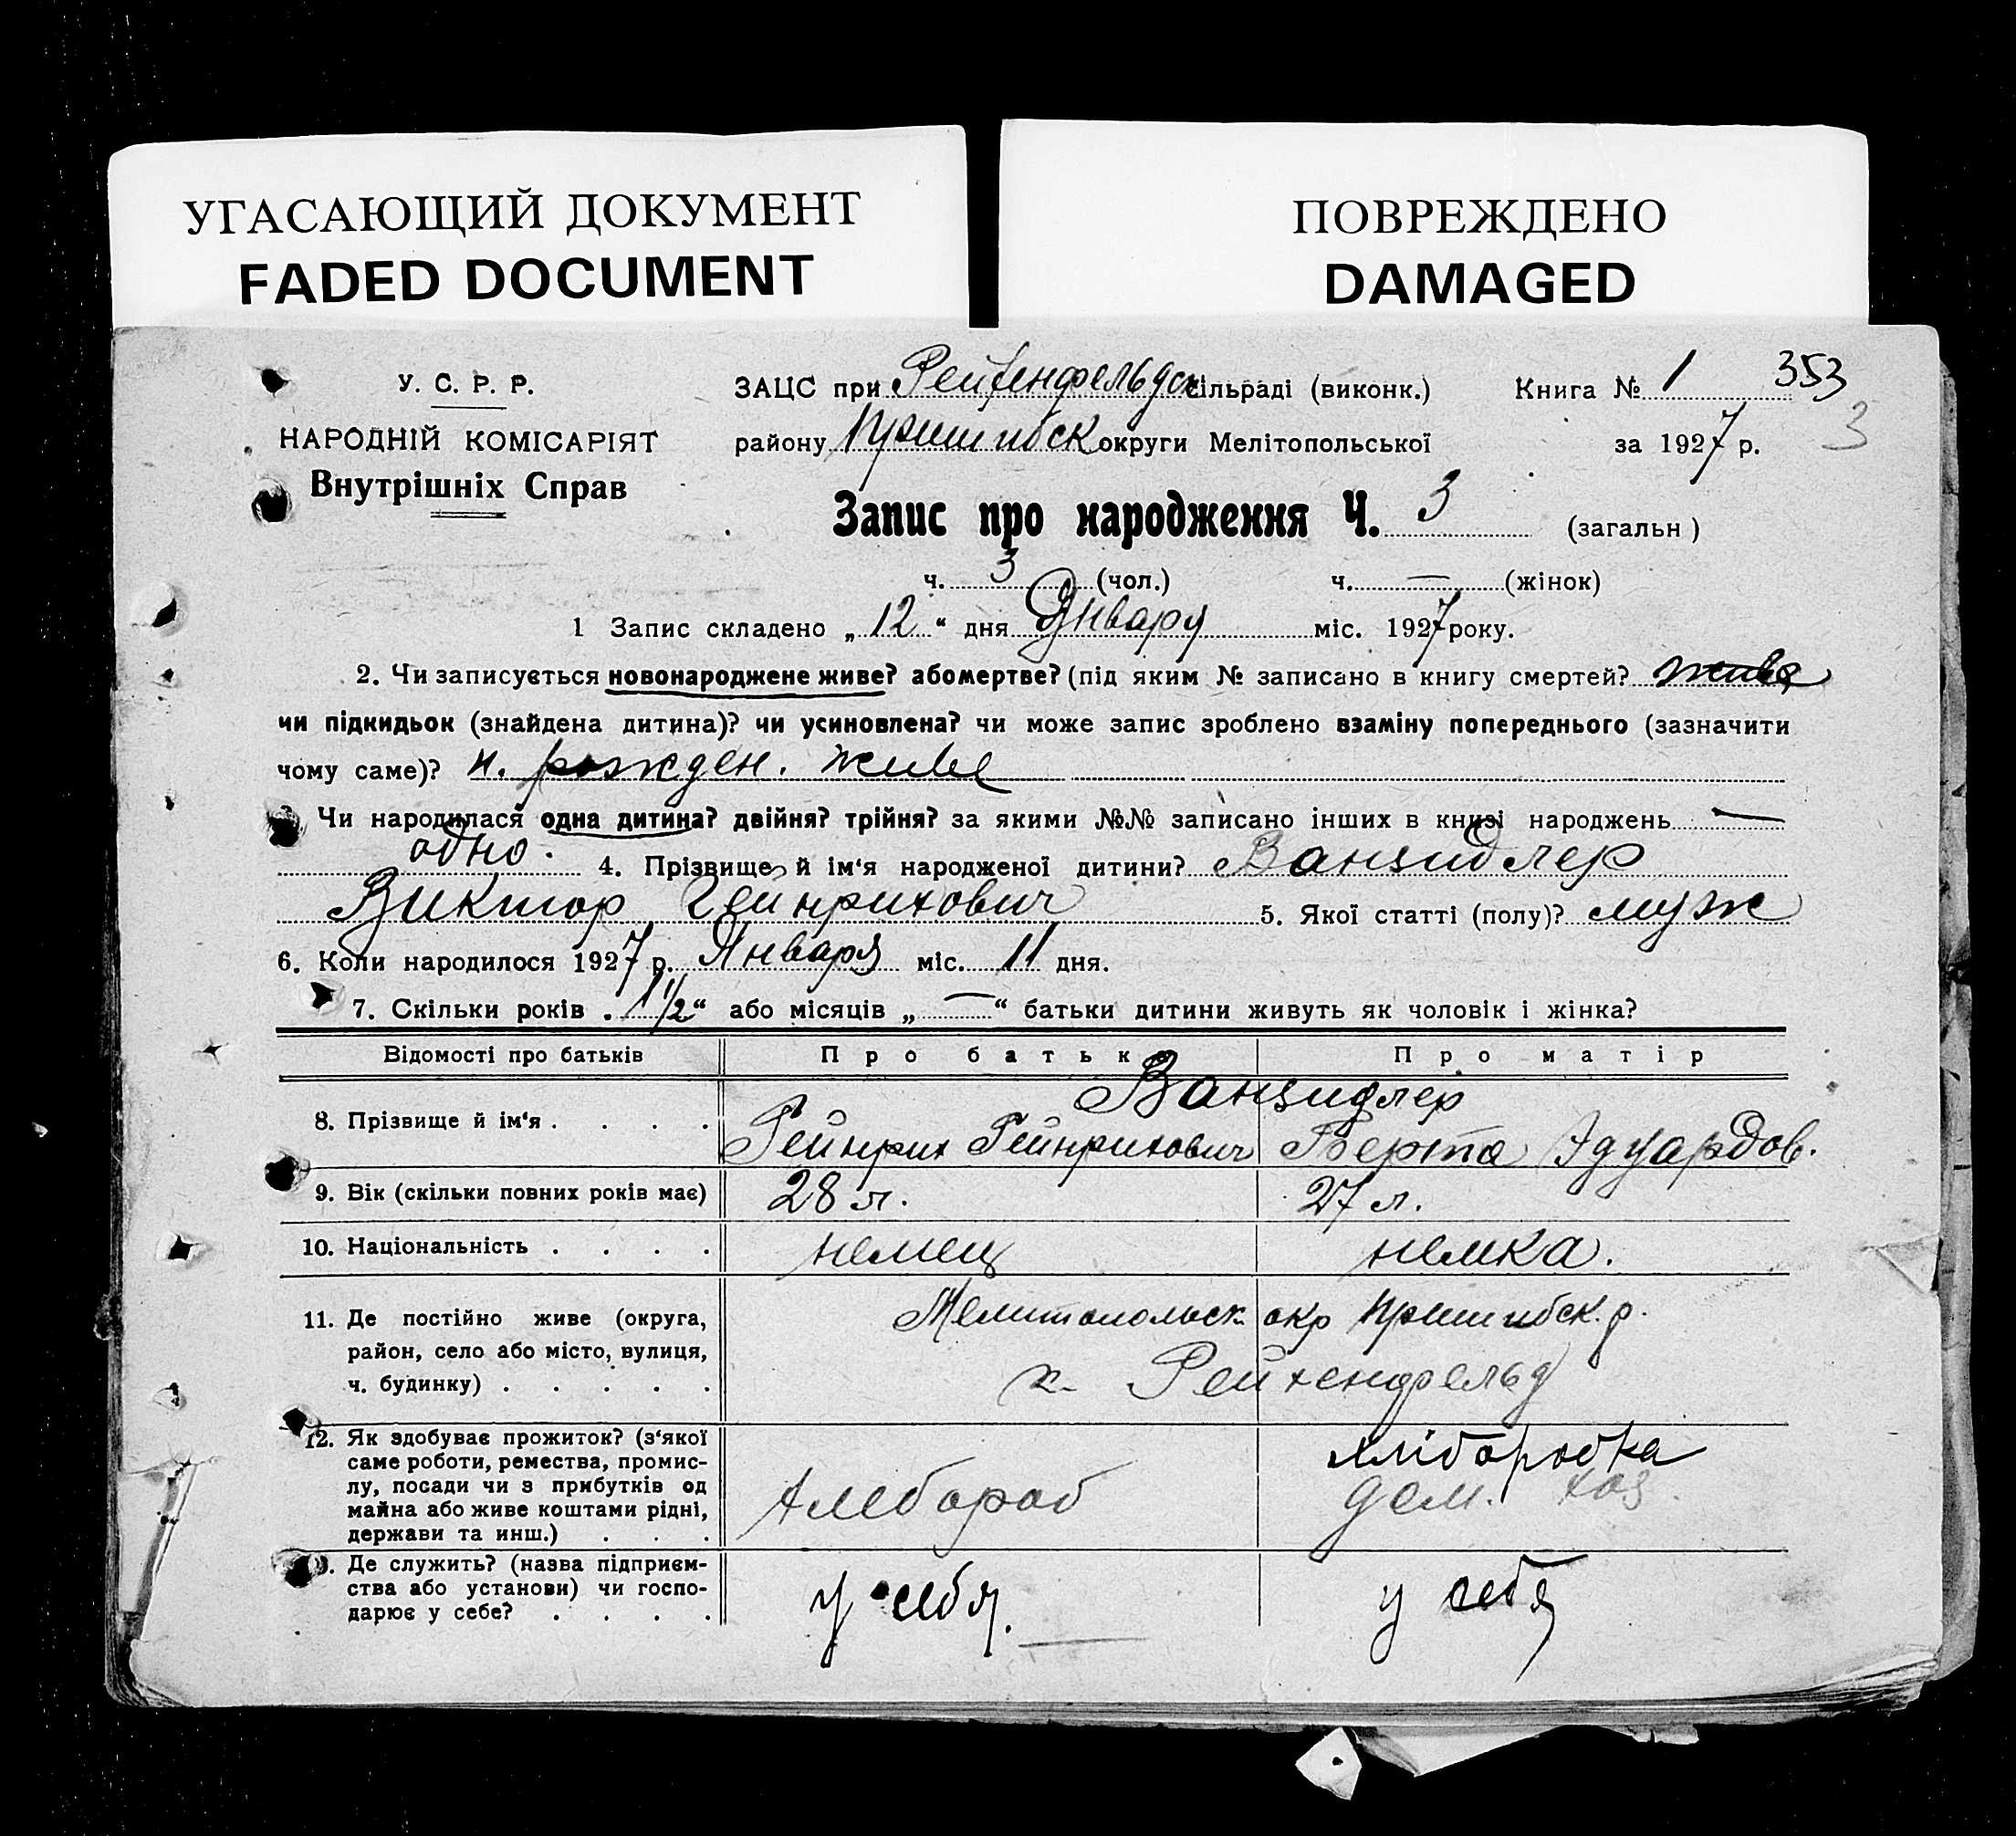 УГАСАЮЩИЙ ДОКУМЕНТ
FADED DOCUMENT
ПОВРЕЖДЕНО
DAMAGED
У. С. Р. Р.
НАРОДНІЙ КОМІСАРІЯТ
Внутрішніх Справ
ЗАЦС при Рейхенфельдск сільраді (виконк.) Книга № 1 353
району Пришибск округи Мелітопольської за 1927 р. 3
Запис про народження Ч. 3 (загальн)
ч. 3 (чол.) ч. — (жінок)
1 Запис складено „12“ дня Января міс. 1927 року.
2. Чи записується новонароджене живе? або мертве? (під яким № записано в книгу смертей? живе
чи підкидьок (знайдена дитина)? чи усиновлена? чи може запис зроблено взаміну попереднього (зазначити
чому саме)? н. рожден. живе
Чи народилася одна дитина? двійня? трійня? за якими №№ записано інших в книзі народжень —
одно. 4. Прізвище й ім'я народженої дитини? Ванзидлер
Виктор Гейнрихович 5. Якої статті (полу)? муж
6. Коли народилося 1927 р. Января міс. 11 дня.
7. Скільки років 1 1/2“ або місяців „—“ батьки дитини живуть як чоловік і жінка?
Відомості про батьків Про батька Про матір
Ванзидлер
8. Прізвище й ім‘я . . . . Гейнрих Гейнрихович Берта Эдуардов.
9. Вік (скільки повних років має) 28 л. 27 л.
10. Національність . . . . немец немка.
11. Де постійно живе (округа, Мелитопольск. окр Пришибск. р.
район, село або місто, вулиця,
ч. будинку) . . . . . к. Рейхенфельд
12. Як здобуває прожиток? (з‘якої
саме роботи, ремества, промис-
лу, посади чи з прибутків од
майна або живе коштами рідні,
держави та инш.) . . .
хлебороб
хліборобка
дом. хоз.
Де служить? (назва підприєм-
ства або установи) чи госпо-
дарює у себе? . . . .
у себя.
у себя